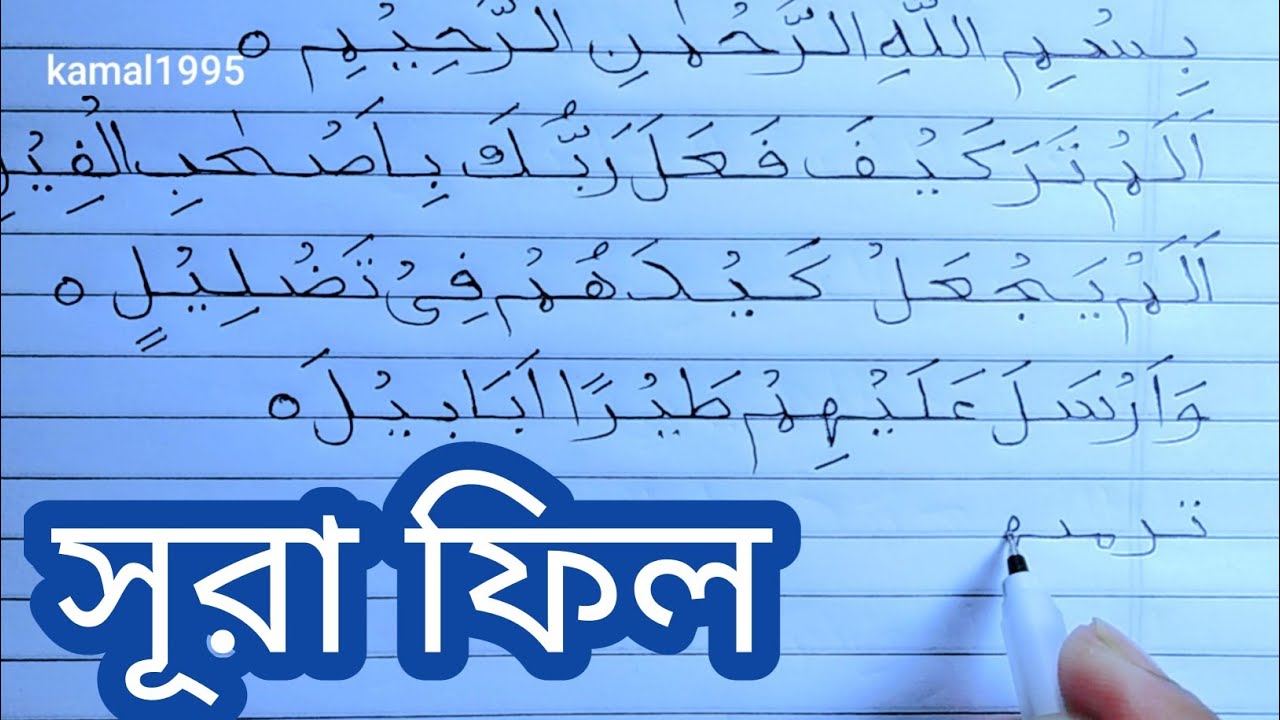 بِسْمِ اللّٰهِ الرَّحْمٰنِ الرَّحِيْمِ ○
kamal1995
اَلَمْ تَرَ كَيْفَ فَعَلَ رَبُّكَ بِاَصْحٰبِ الْفِيْلِ
اَلَمْ يَجْعَلْ كَيْدَهُمْ فِىْ تَضْلِيْلٍ ○
وَاَرْسَلَ عَلَيْهِمْ طَيْرًا اَبَابِيْلَ ○
ترميهم
সূরা ফিল